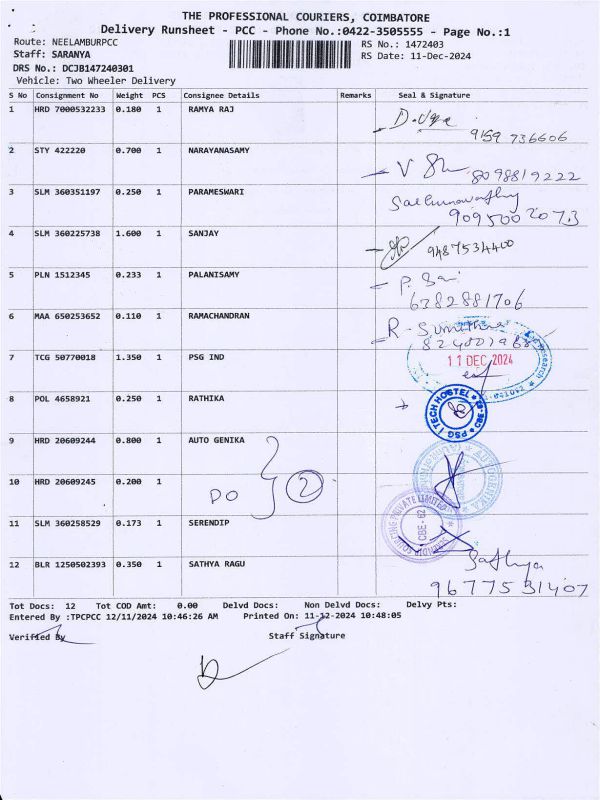 THE PROFESSIONAL COURIERS, COIMBATORE
Delivery Runsheet - PCC - Phone No.:0422-3505555 - Page No.:1
Route: NEELAMBURPCC RS No.: 1472403
Staff: SARANYA RS Date: 11-Dec-2024
DRS No.: DCJB147240301
Vehicle: Two Wheeler Delivery
S No Consignment No Weight PCS Consignee Details Remarks Seal & Signature
1 HRD 7000532233 0.180 1 RAMYA RAJ
9159 736606
2 STY 422220 0.700 1 NARAYANASAMY
8098819222
3 SLM 360351197 0.250 1 PARAMESWARI
909500 2073
4 SLM 360225738 1.600 1 SANJAY
9487534400
5 PLN 1512345 0.233 1 PALANISAMY
6382881706
6 MAA 650253652 0.110 1 RAMACHANDRAN
7 TCG 50770018 1.350 1 PSG IND
11 DEC 2024
8 POL 4658921 0.250 1 RATHIKA
PSG iTECH HOSTEL
9 HRD 20609244 0.800 1 AUTO GENIKA
10 HRD 20609245 0.200 1
DO 2
11 SLM 360258529 0.173 1 SERENDIP
CBE-62
12 BLR 1250502393 0.350 1 SATHYA RAGU
Sathya
9677531407
Tot Docs: 12 Tot COD Amt: 0.00 Delvd Docs: Non Delvd Docs: Delvy Pts:
Entered By :TPCPCC 12/11/2024 10:46:26 AM Printed On: 11-12-2024 10:48:05
Verified By Staff Signature